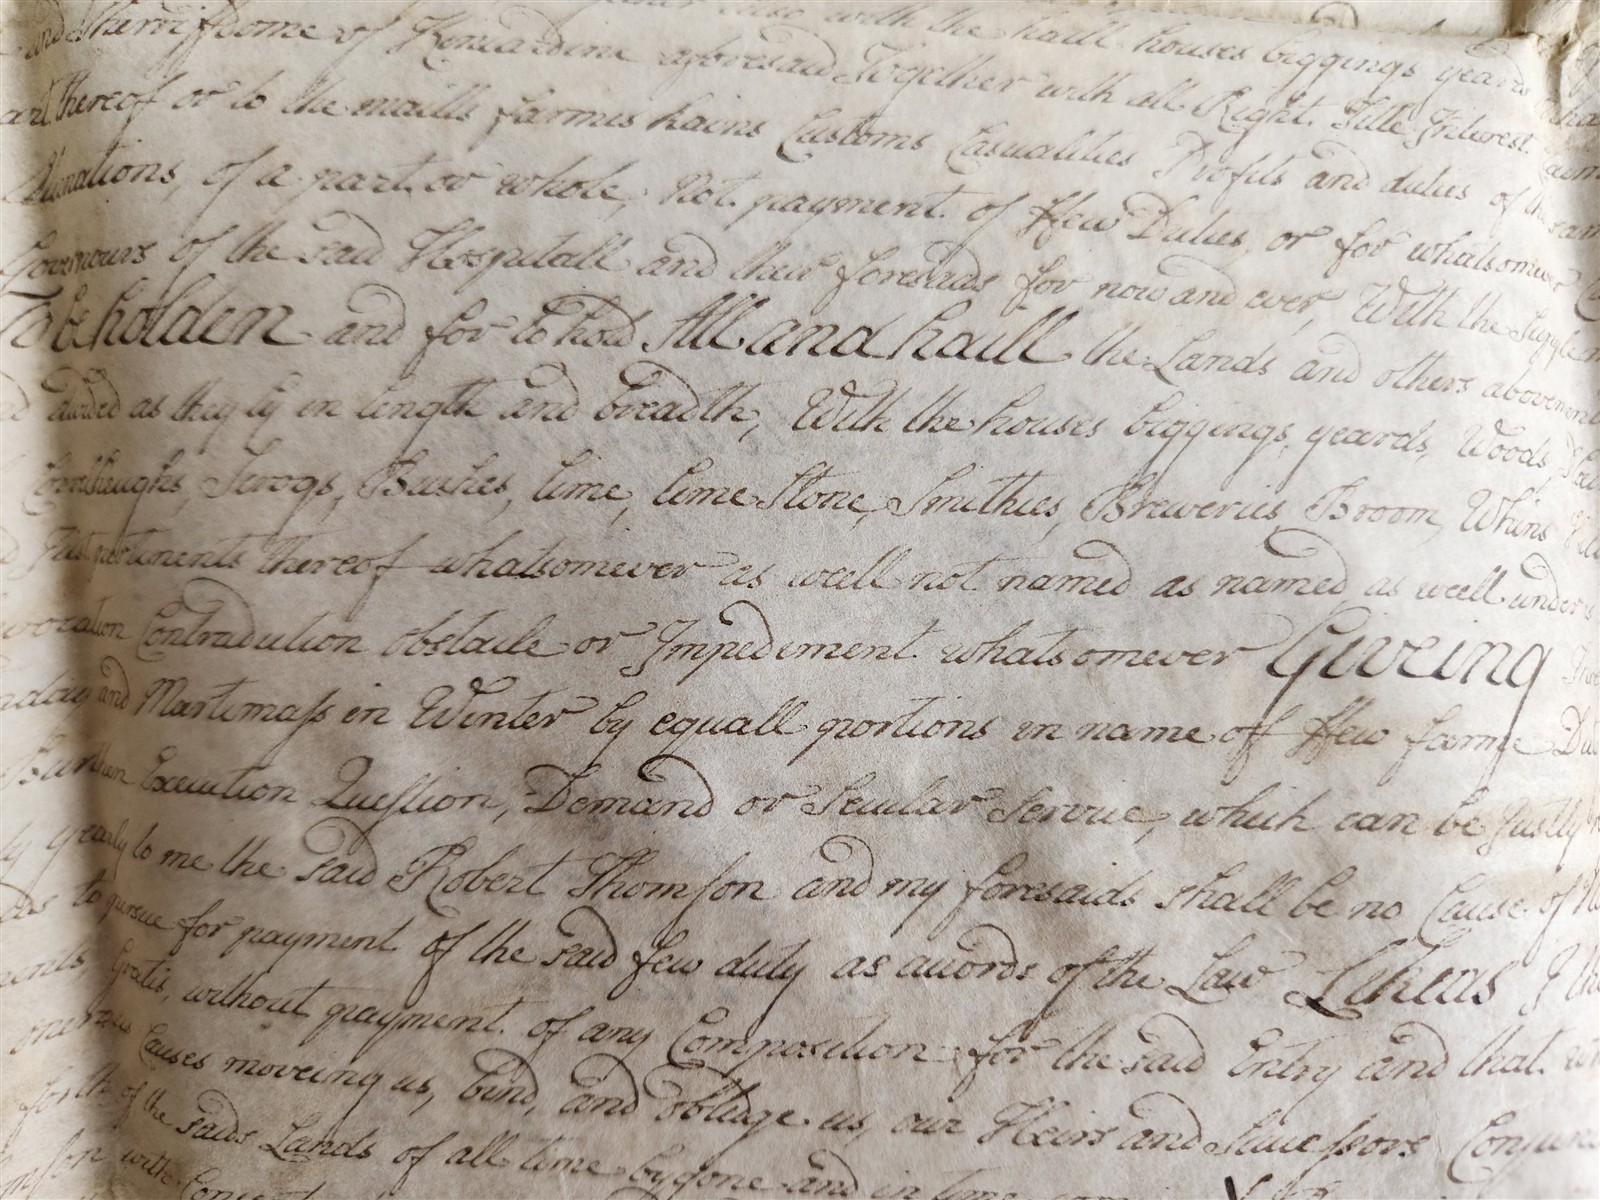 also with the haill houses biggings yeards
and Sherriffdome of Kincardine aforesaid Together with all Right Title Interest
thereof or to the maills farmes kains Customs Casualities Profits and duties of the
of a part or whole, not payment of ffew Duties, or for whatsomever
Governours of the said Hospitall and their foresaids for now and ever, With the
To be holden and for to hold All and haill the Lands and others
as they ly in length and breadth, With the houses biggings, yeards, Woods,
Scrogs, Bushes, lime, lime Stone, Smithies, Breweries, Broom, Whins
pertinents thereof whatsomever as well not named as named as well under
Contradiction obstacle or Impediment whatsomever Giveing
and Martimass in Winter by equall portions in name of ffew farme
Execution Question, Demand or Secular Service, which can be justly
yearly to me the said Robert Thomson and my foresaids shall be no Cause of
to pursue for payment of the said few duty as accords of the Law Likeas I
Gratis, without payment of any Composition for the said Entry and that
Causes moveing us, bind, and obleige us, our Heirs and Successors
forth of the saids Lands of all time bygone and in time
with